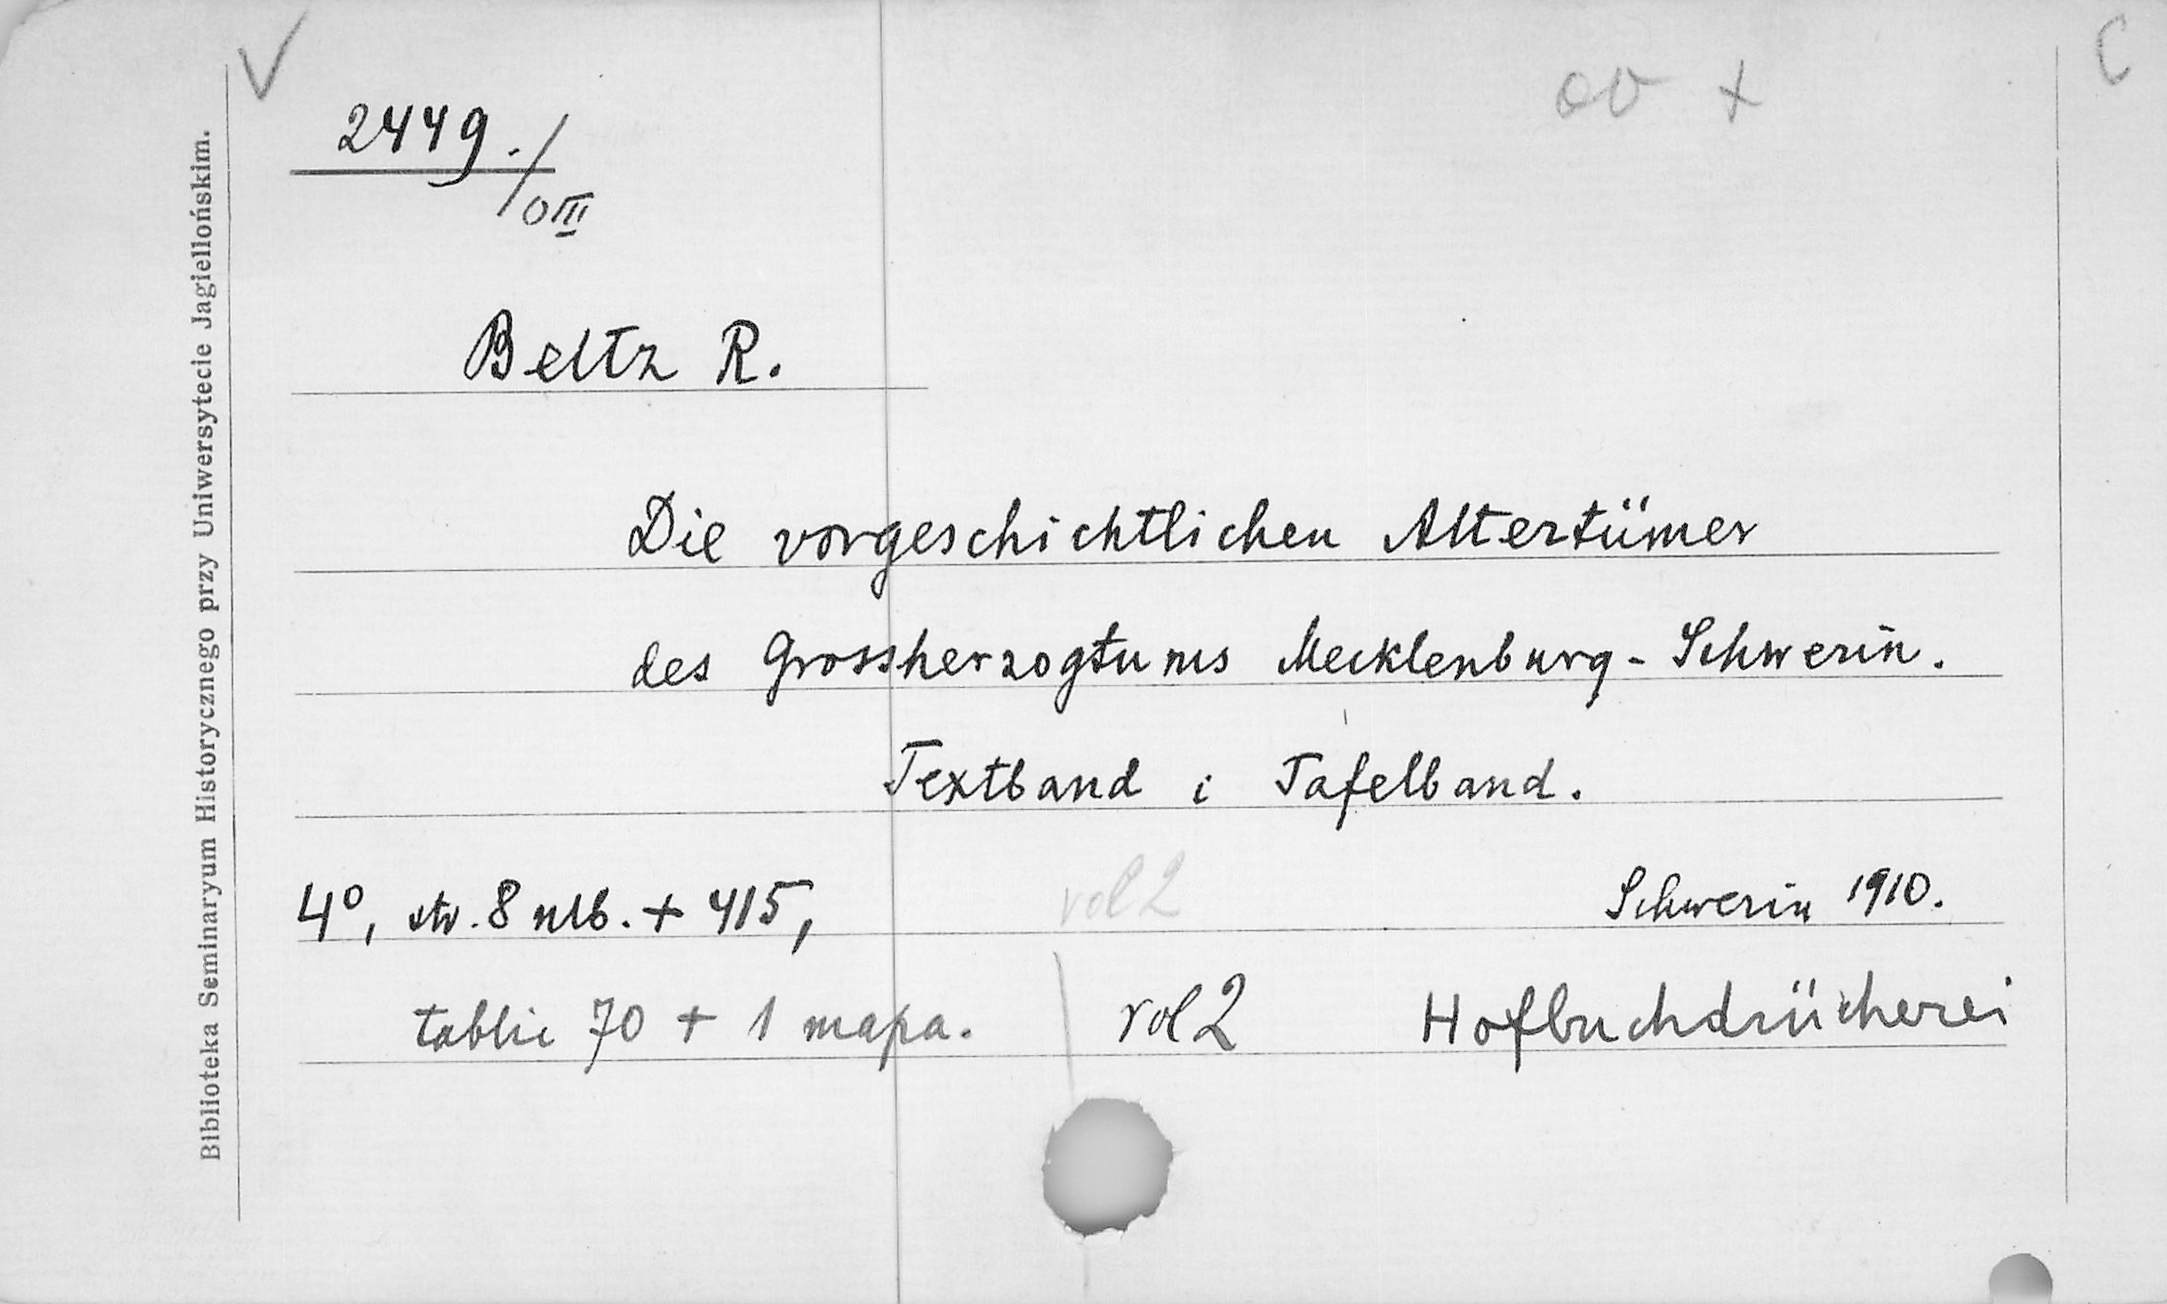 V
ov +
C
2449./OIII
Beltz R.
Die vorgeschichtlichen Altertümer
des Grossherzogtums Mecklenburg-Schwerin.
Textband i Tafelband.
4°, str. 8 nlb. + 415,
vol 2
Schwerin 1910.
tablic 70 + 1 mapa.
vol 2
Hofbuchdrücherei
Biblioteka Seminaryum Historycznego przy Uniwersytecie Jagiellońskim.